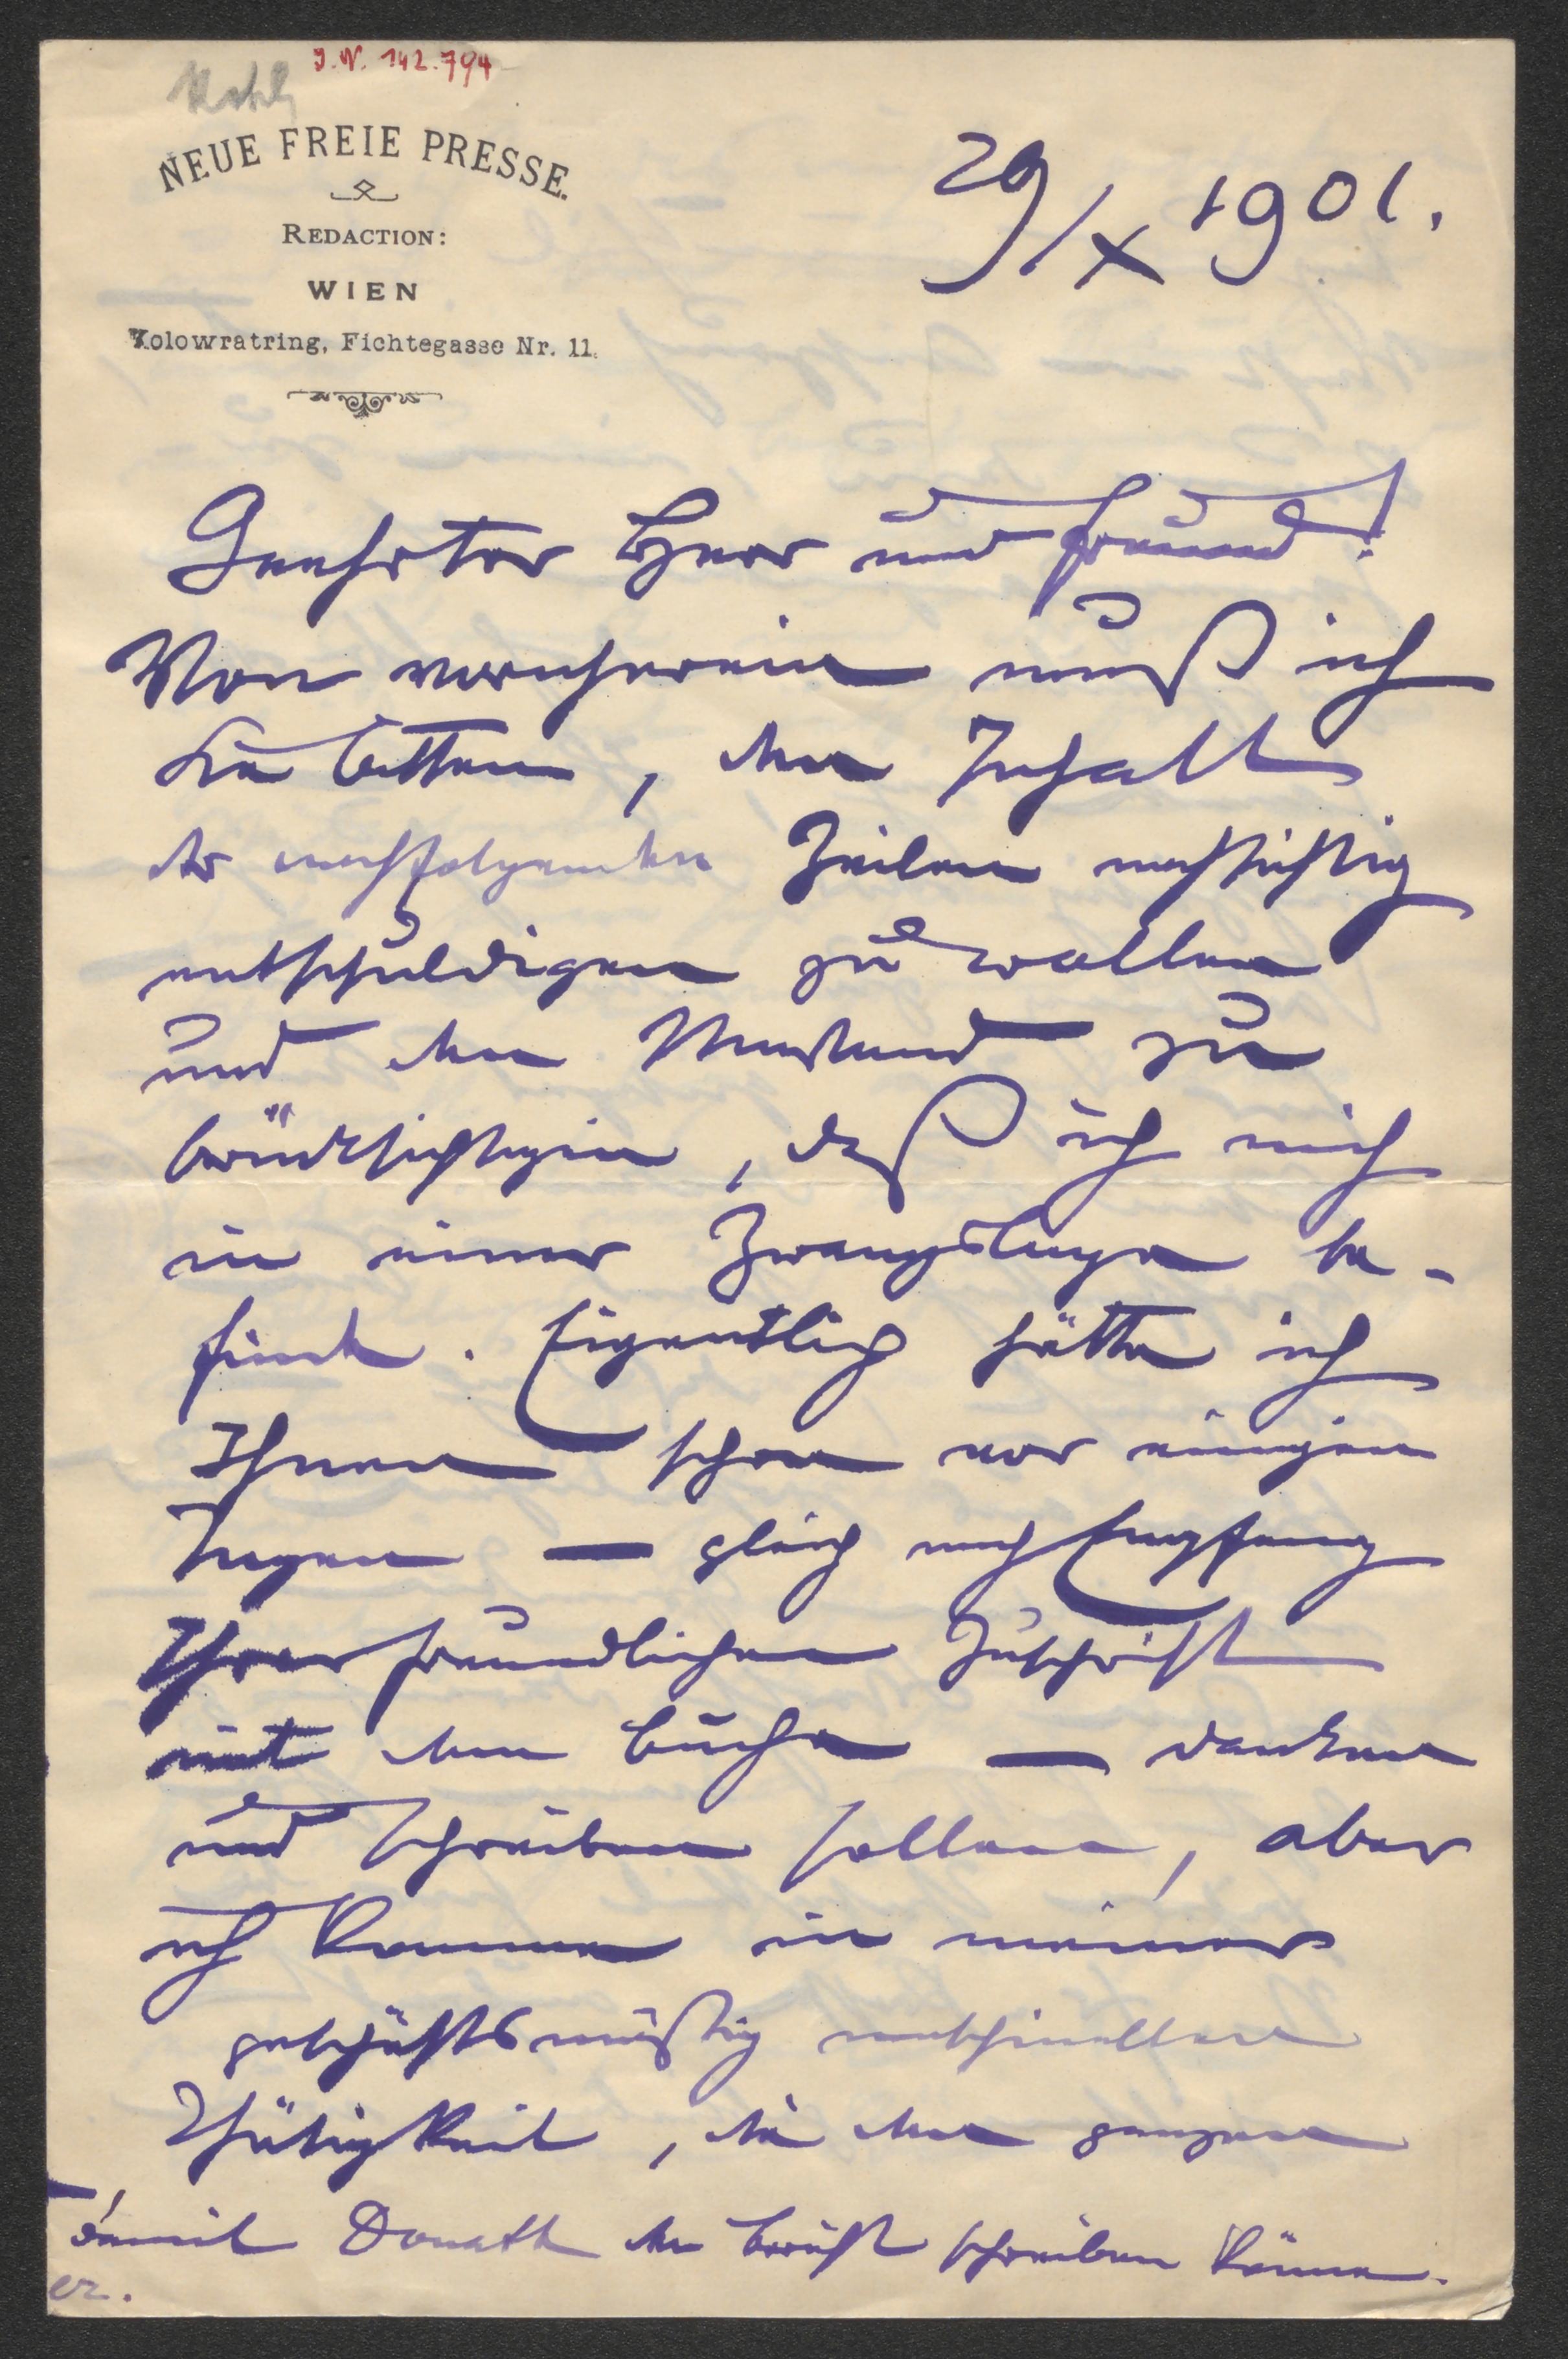 J. N. 142.794
NEUE FREIE PRESSE.
REDACTION:
WIEN
Kolowratring, Fichtegasse Nr. 11.
29/X 1901.
Geehrter Herr und Freund!
Von vornherein muß ich
Sie bitten, den Inhalt
der nachfolgenden Zeilen nachsichtig
entschuldigen zu wollen
und den Umstand zu
berücksichtigen, daß ich mich
in einer Zwangslage be-
finde. Eigentlich hätte ich
Ihnen schon vor einigen
Tagen — gleich nach Empfang
Ihrer freundlichen Zuschrift
mit dem Buche — danken
und schreiben sollen, aber
ich komme in meiner
geschäftsmäßig maschinellen
Thätigkeit, die den ganzen
damit Donath den Bericht schreiben könne.